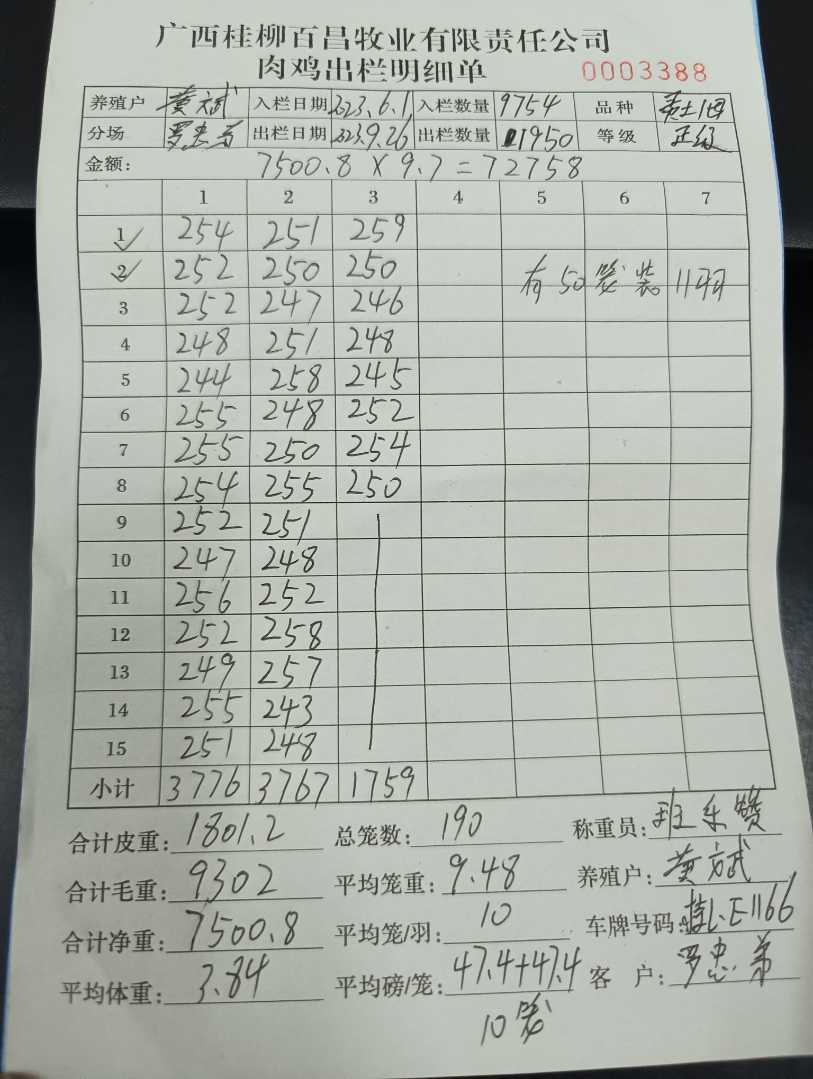 广西桂柳百昌牧业有限责任公司
肉鸡出栏明细单 0003388
养殖户 黄斌 入栏日期 2023.6.1 入栏数量 9754 品种
分场 罗忠 出栏日期 2023.9.26 出栏数量 1950 等级 正级
金额: 7500.8 × 9.7 = 72758
1 2 3 4 5 6 7
1 254 251 259
2 252 250 250 有50笼装11羽
3 252 247 246
4 248 251 248
5 244 258 245
6 255 248 252
7 255 250 254
8 254 255 250
9 252 251
10 247 248
11 256 252
12 252 258
13 249 257
14 255 243
15 251 248
小计 3776 3767 1759
合计皮重: 1801.2 总笼数: 190 称重员: 班乐赞
合计毛重: 9302 平均笼重: 9.48 养殖户: 黄斌
合计净重: 7500.8 平均笼/羽: 10 车牌号码: 桂L·E1166
平均体重: 3.84 平均磅/笼: 47.4+47.4 客户: 罗忠
10笼